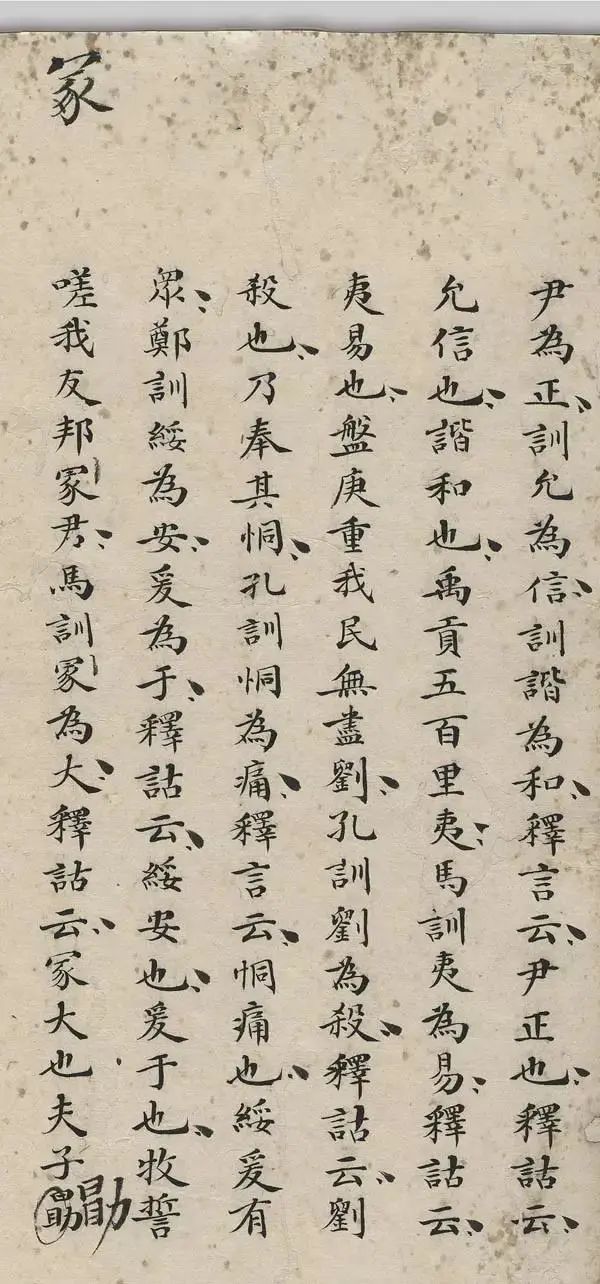 尹為正訓允為信訓諧為和釋言云尹正也釋詁云
允信也諧和也禹貢五百里夷馬訓夷為易釋詁云
夷易也盤庚重我民無盡劉孔訓劉為殺釋詁云劉
殺也乃奉其恫孔訓恫為痛釋言云恫痛也綏爰有
眾鄭訓綏為安爰為于釋詁云綏安也爰于也牧誓
嗟我友邦冢君馬訓冢為大釋詁云冢大也夫子勖
冢
勖